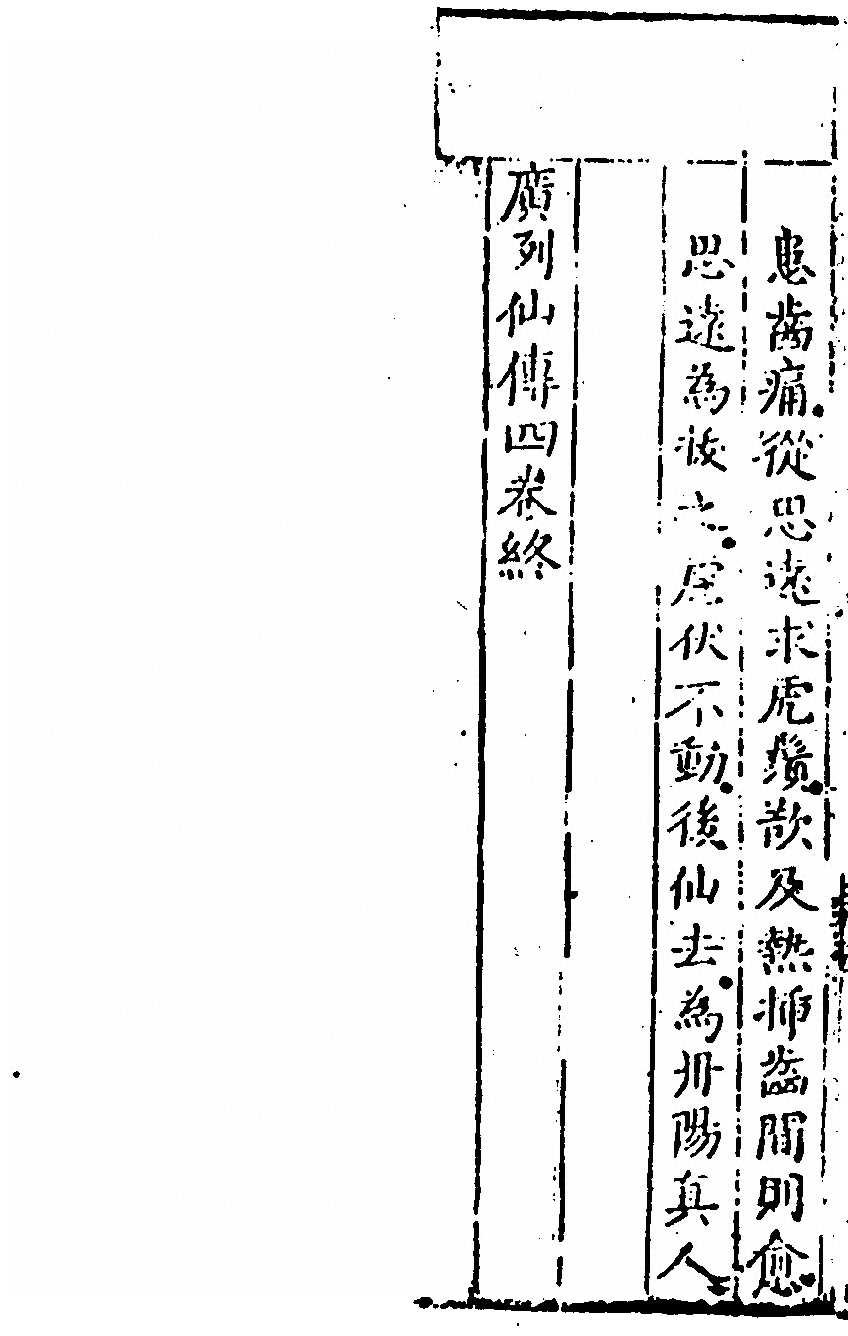 患齒痛。從思遠求虎鬚。欲及熱揷齒間則愈。
思遠為拔之。虎伏不動。後仙去。為丹陽真人。
廣列仙傳四卷終